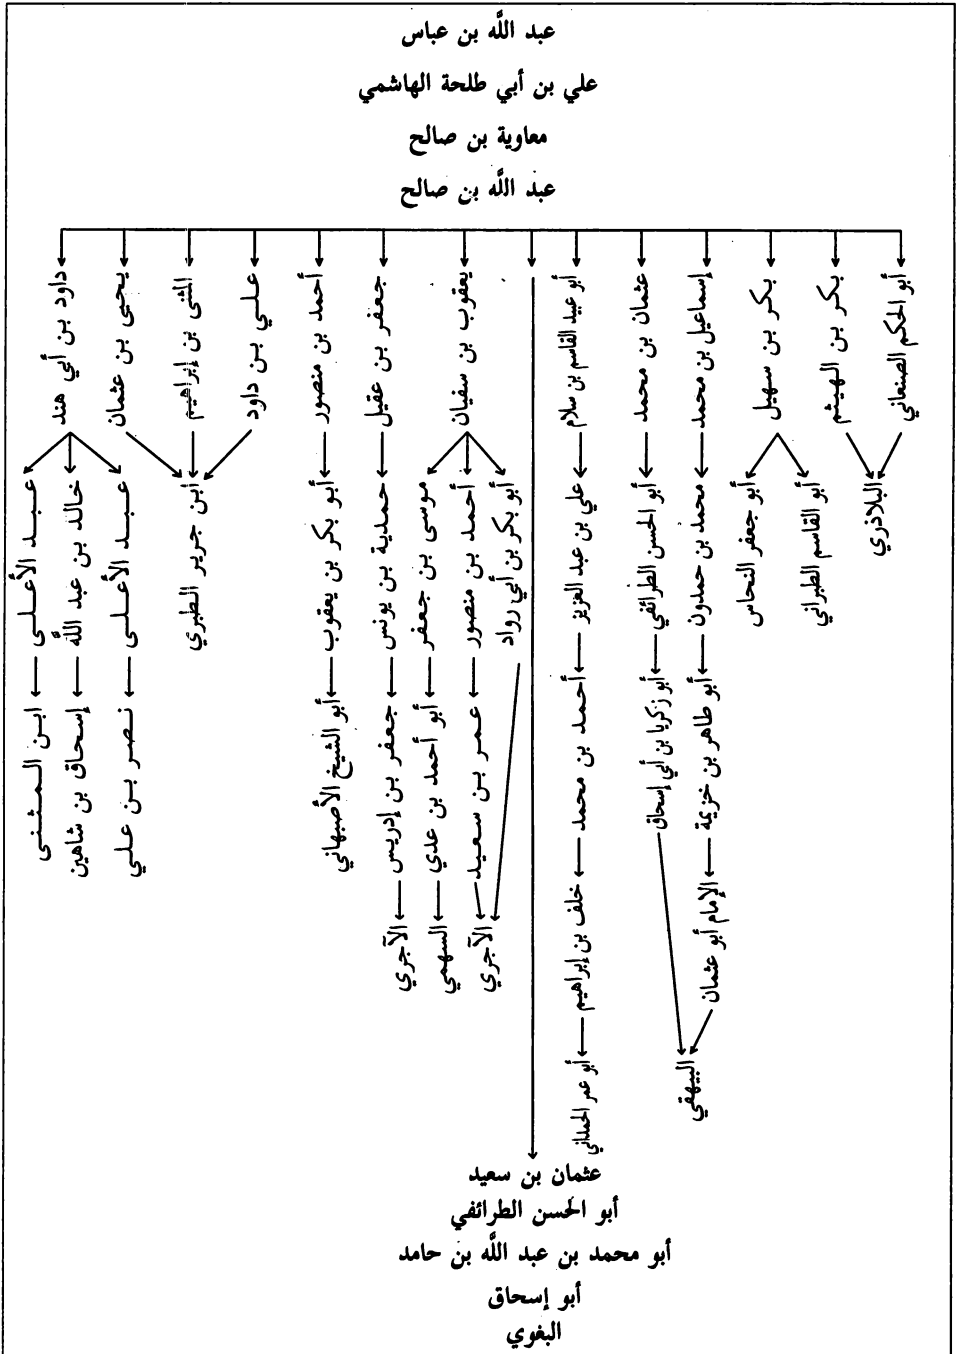 عبد اللَّه بن عباس
علي بن أبي طلحة الهاشمي
معاوية بن صالح
عبد اللَّه بن صالح
أبو الحكم الصنعاني
بكر بن الهيثم
البلاذري
بكر بن سهيل
أبو القاسم الطبراني
أبو جعفر النحاس
إسماعيل بن محمد
محمد بن حمدون
أبو طاهر بن خزيمة
الإمام أبو عثمان
عثمان بن محمد
أبو الحسن الطرائفي
أبو زكريا بن أبي إسحاق
البيهقي
أبو عبيد القاسم بن سلام
علي بن عبد العزيز
أحمد بن محمد
خلف بن إبراهيم
أبو عمر الحمداني
يعقوب بن سفيان
أبو بكر بن أبي رواد
أحمد بن منصور
عمر بن سعيد
الآجري
موسى بن جعفر
أبو أحمد بن عدي
السهمي
جعفر بن عقيل
حمدية بن يونس
جعفر بن إدريس
الآجري
أحمد بن منصور
أبو بكر بن يعقوب
أبو الشيخ الأصبهاني
علي بن داود
المثنى بن إبراهيم
يحيى بن عثمان
ابن جرير الطبري
داود بن أبي هند
عبد الأعلى
نصر بن علي
خالد بن عبد اللَّه
إسحاق بن شاهين
عبد الأعلى
ابن المثنى
عثمان بن سعيد
أبو الحسن الطرائفي
أبو محمد بن عبد اللَّه بن حامد
أبو إسحاق
البغوي